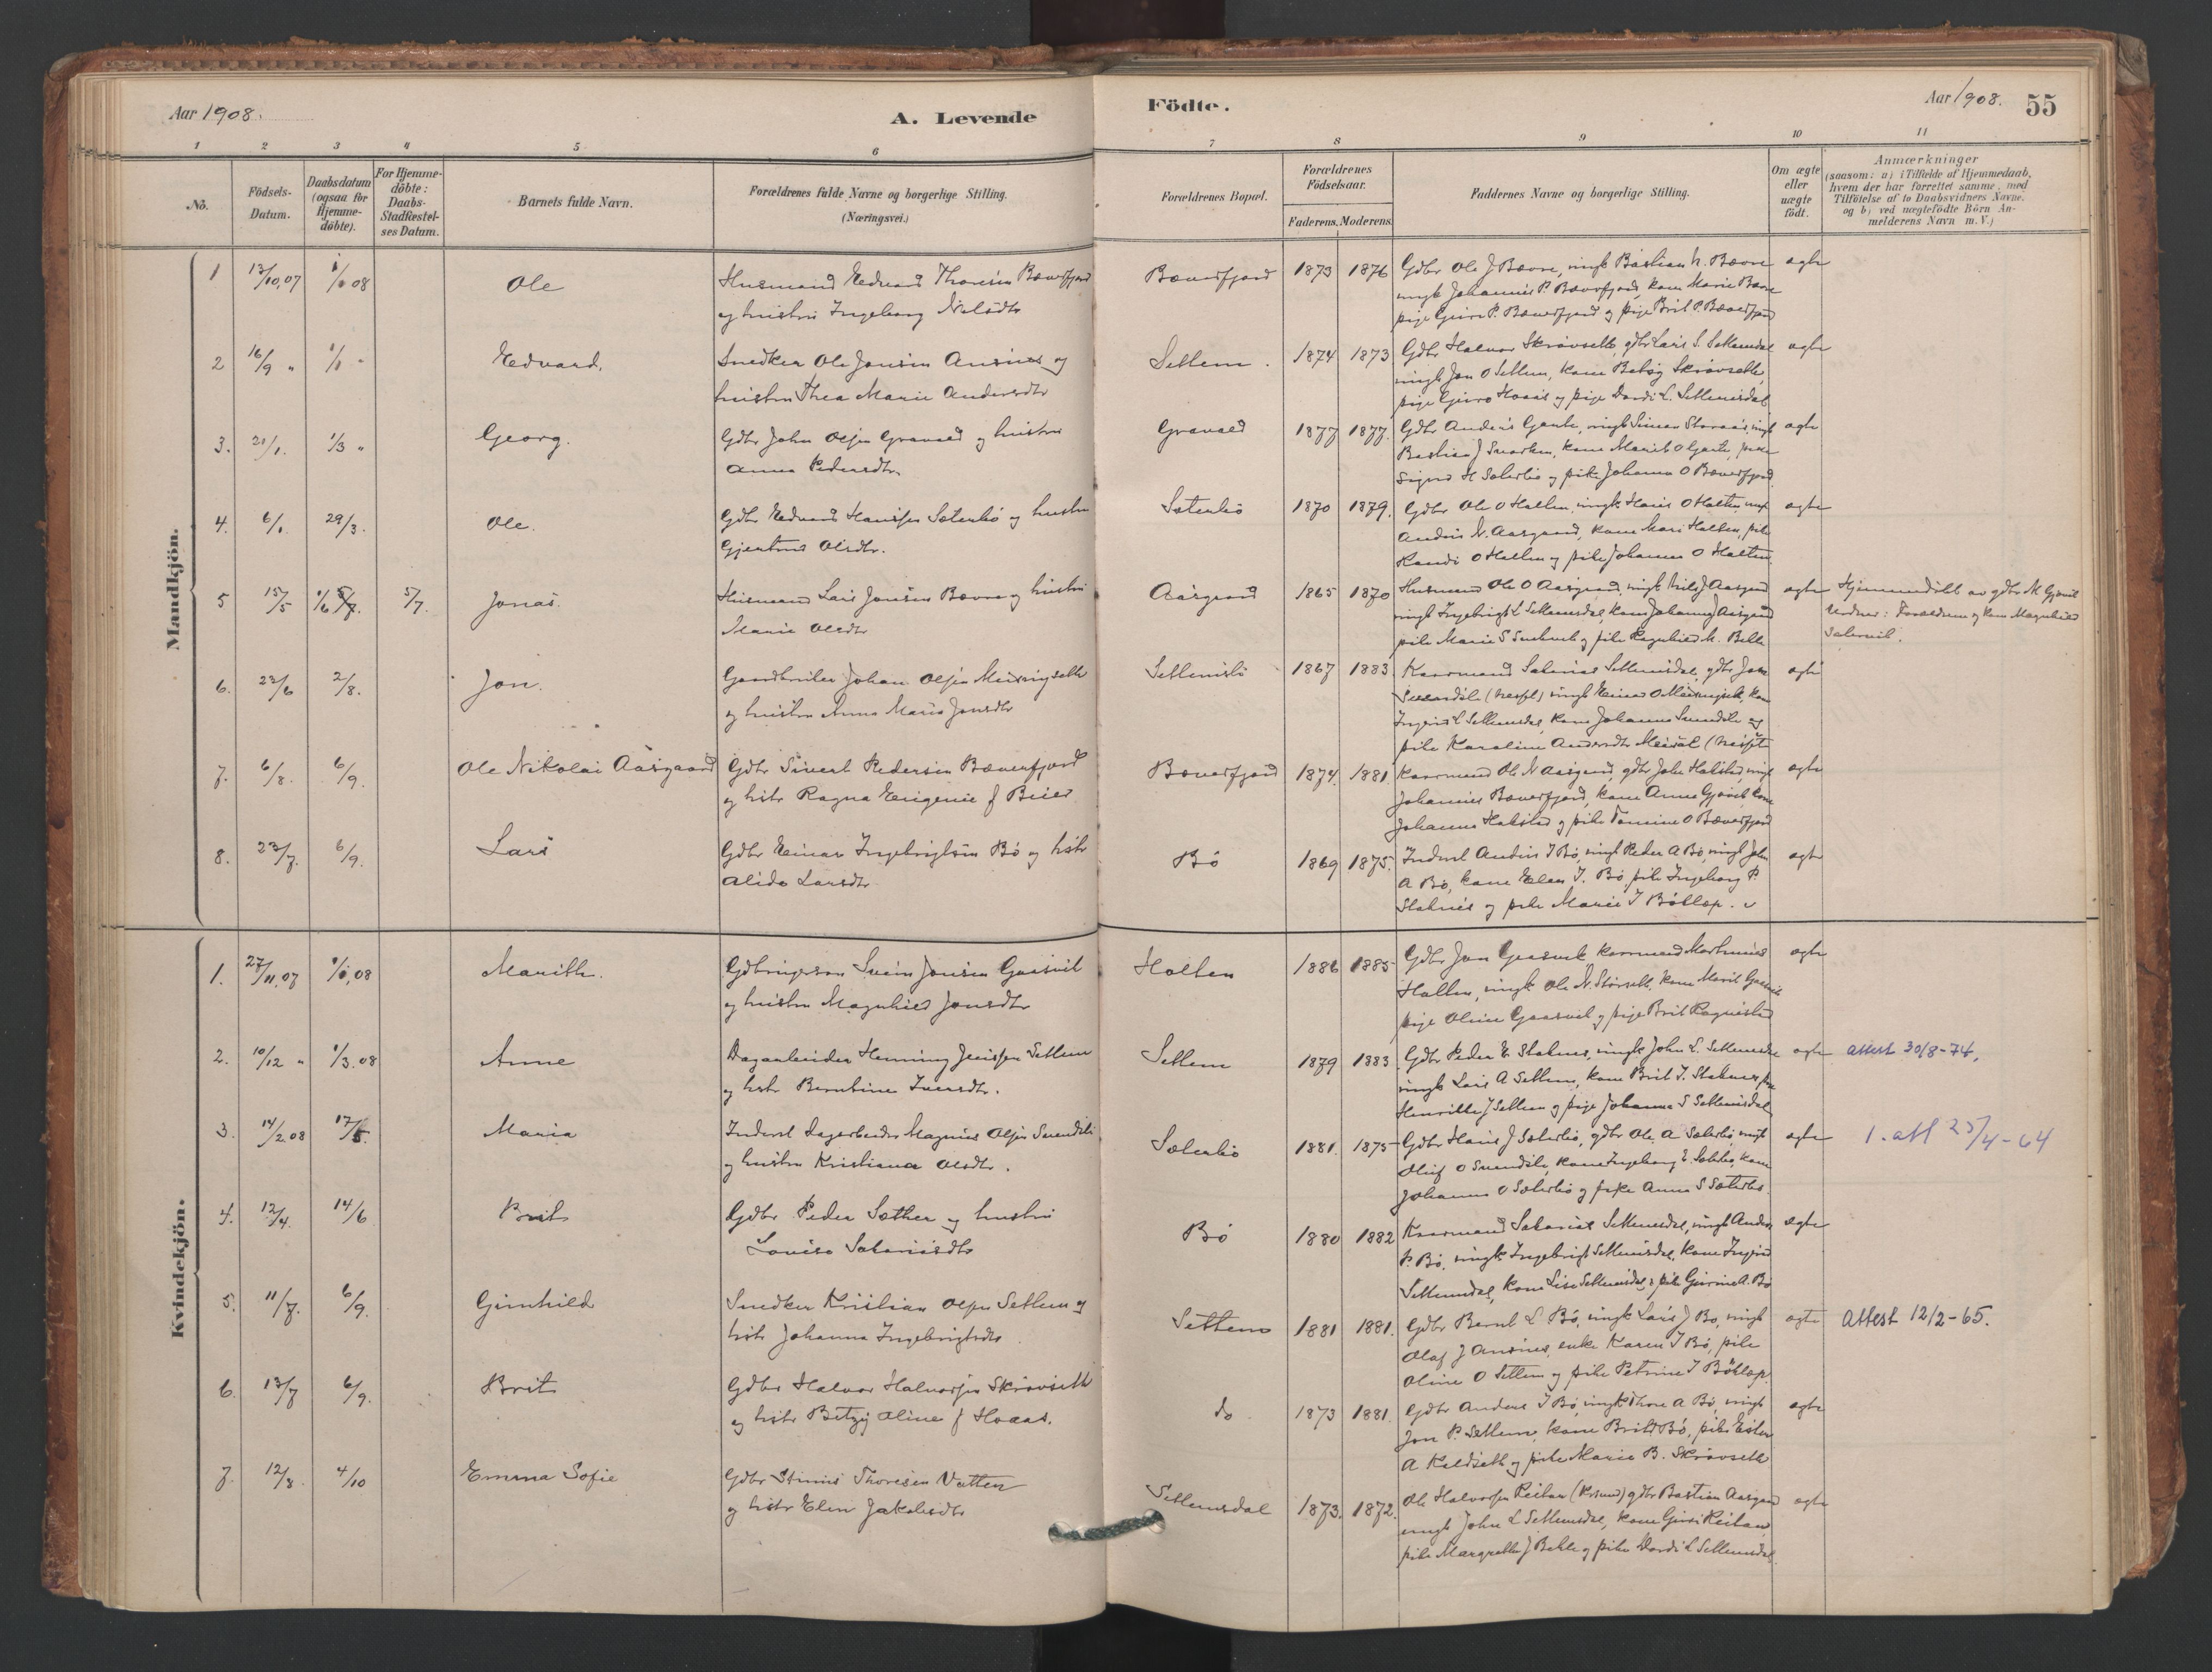 Aar 1908.
A. Levende
Födte.
Aar 1908.
55
1 2 3 4 5 6 7 8 9 10 11
No.
Födsels-Datum.
Daabsdatum (ogsaa for Hjemme-döbte).
For Hjemme-döbte: Daabs-Stadfæstel-ses Datum.
Barnets fulde Navn.
Forældrenes fulde Navne og borgerlige Stilling.
(Næringsvei.)
Forældrenes Bopæl.
Forældrenes Födselsaar.
Faderens. Moderens.
Faddernes Navne og borgerlige Stilling.
Om ægte eller uægte födt.
Anmærkninger
(saasom: a) i Tilfælde af Hjemmedaab,
hvem der har forrettet samme, med
Tilföielse af to Daabsvidners Navne.
og b) ved uægtefödte Börn An-
melderens Navn m. V.)
Mandkjön.
1 13/10.07 1/1 08 Ole
Husmand Edvard Thoresen Bæverfjord
og hustru Ingeborg Nilsdtr
Bæverfjord 1873 1876
Gdbr Ole J Bævre, ungk Bastian N. Bævre
ungk Johannes P. Bæverfjord, kone Marie Bævre
pige Guro P. Bæverfjord og pige Brit P. Bæverfjord
ægte
2 16/9 " 1/1 " Edvard.
Snedker Ole Jonsen Ansnes og
hustru Thea Marie Andersdtr
Settem. 1874 1873
Gdbr Halvor Skrøvseth, gdbr Lars S. Settemsdal
ungk Jon O Settem, kone Betsy Skrøvseth,
pige Guro Hoaas og pige Dordi L. Settemsdal
ægte
3. 20/1. 1/3 " Georg.
Gdbr John Olsen Gravald og hustru
Anna Pedersdtr.
Gravald 1877 1877.
Gdbr Anders Garte, ungk Simon Storaas, ungk
Bastian J Snorken, kone Marit O Garte, pike
Signe H Sæterbø og pike Johanna O Bæverfjord
ægte
4. 6/1. 29/3. Ole.
Gdbr Edvard Hansen Sæterbø og hustru
Gjertrud Olsdtr.
Sæterbø 1870 1879.
Gdbr Ole O Holten, ungk Hans O Holten, ungk
Anders N. Aasgaard, kone Mari Holten, pike
Randi O Holten og pike Johanna O Holten
ægte
5 15/5 1/6 5/7. 5/7. Jonas.
Husmand Lars Jonsen Bævre og hustru
Marie Olsdtr
Aasgaard 1865 1870
Husmand Ole O Aasgaard, ungk Nils J Aasgaard
ungk Ingebrigt L Settemsdal, kone Johanna J Aasgaard
pike Marie S
ægte
Hjemmedøbt av gdbr M Gjøvik
Vidner: Forældrene og kone Magnhild
6. 22/6 2/8. Jon.
Gaardbruker Johan Olsen Meisingseth
og hustru Anne Marie Jonsdtr
Settemslø 1867 1883
Kaarmand Sakarias Settemsdal, gdbr Jon
Ingrid L Settemsdal, kone Johanna Svendsli og
pike Karoline Andersdtr
ægte
7. 6/8. 6/9. Ole Nikolai Aasgaard
Gdbr Sivert Pedersen Bæverfjord
og hstr Ragna Eugenie f Beier
Bæverfjord 1874. 1881
Kaarmand Ole N Aasgaard, gdbr John Halstad, ungk
Johannes Bæverfjord, kone Anne Gjøvik, kone
Johanna Halstad og pike Tomine O Bæverfjord
ægte
8. 23/7. 6/9. Lars
Gdbr Einar Ingebrigtsen Bø og hstr
Alida Larsdtr
Bø 1869 1875.
Inderst Anders I Bø, ungk Peder A Bø, ungk John
A Bø, kone Elen I. Bø, pike Ingeborg P.
Staknes og pike Marie I Bøklep.
ægte
Kvindekjön.
1. 27/11.07 1/1.08 Marith.
Gdbrugerson Svein Jonsen Gaasvik
og hustru Magnhild Jonsdtr
Holten 1886 1885
Gdbr Jon Gaasvik kaarmand Martinus
Holten, ungk Ole N. Størseth, kone Marit Gaasvik
pige Oline Gaasvik og pige Brit Ragnistad
ægte
2. 10/12 " 1/3.08 Anne
Dagarbeider Henning Jensen Settem
og hstr Berntine Iversdtr.
Settem 1879 1883.
Gdbr Peder E. Staknes, ungk John L. Settemsdal
ungk Lars A Settem, kone Brit I. Staknes, pige
Henrikke J Settem og pige Johanna S Settemsdal
ægte
attest 30/8-74.
3. 14/2.08 17/5. Maria
Inderst Dagarbeider Magnus Olsen Svendsli
og hustru Kristiana Olsdtr.
Sæterbø 1881. 1875
Gdbr Hans J Sæterbø, gdbr Ole A Sæterbø, ungk
Oluf O Svendsli, kone Ingeborg E. Sæterbø, kone
Johanna O Sæterbø og pike Anna S Sæterbø.
ægte
1. att 23/4-64
4. 12/4. 14/6 Brit
Gdbr Peder Sæther og hustru
Lovise Sakariasdtr
Bø 1880 1882
Kaarmand Sakarias Settemsdal, ungk Anders
P. Bø, ungk Ingebrigt Settemsdal, kone Ingrid
Settemsdal, kone Lise Settemsdal og pike Gurine A. Bø
ægte
5. 11/7. 6/9. Gunhild
Snedker Kristian Olsen Settem og
hstr Johanna Ingebrigtsdtr
Settem 1881 1881.
Gdbr Bernt L Bø, ungk Lars J Bø, ungk
Olaf J Ansnes, enke Karen I Bø, pike
Oline O Settem og pike Petrine I Bøklep.
ægte
Attest 12/2-65.
6. 13/7 6/9. Brit
Gdbr Halvor Halvorsen Skrøvseth
og hstr Betzy Oline f Hoaas.
do 1873 1881.
Gdbr Anders I Bø, ungk Thore A Bø, ungk
Jon P. Settem, kone Brit Bø, pike Ester
A Kaldseth og pike Marie B. Skrøvseth
ægte
7. 12/8 4/10 Emma Sofie
Gdbr Stinus Thoresen Vatten
og hstr Elen Jakobsdtr
Settemsdal 1873. 1872.
Ole Halvorsen Reitan (Krsund) gdbr Bastian Aasgaard
ungk John L Settemsdal, kone Guri Reitan,
pike Margrethe J Bekle og pike Dordi L Settemsdal.
ægte